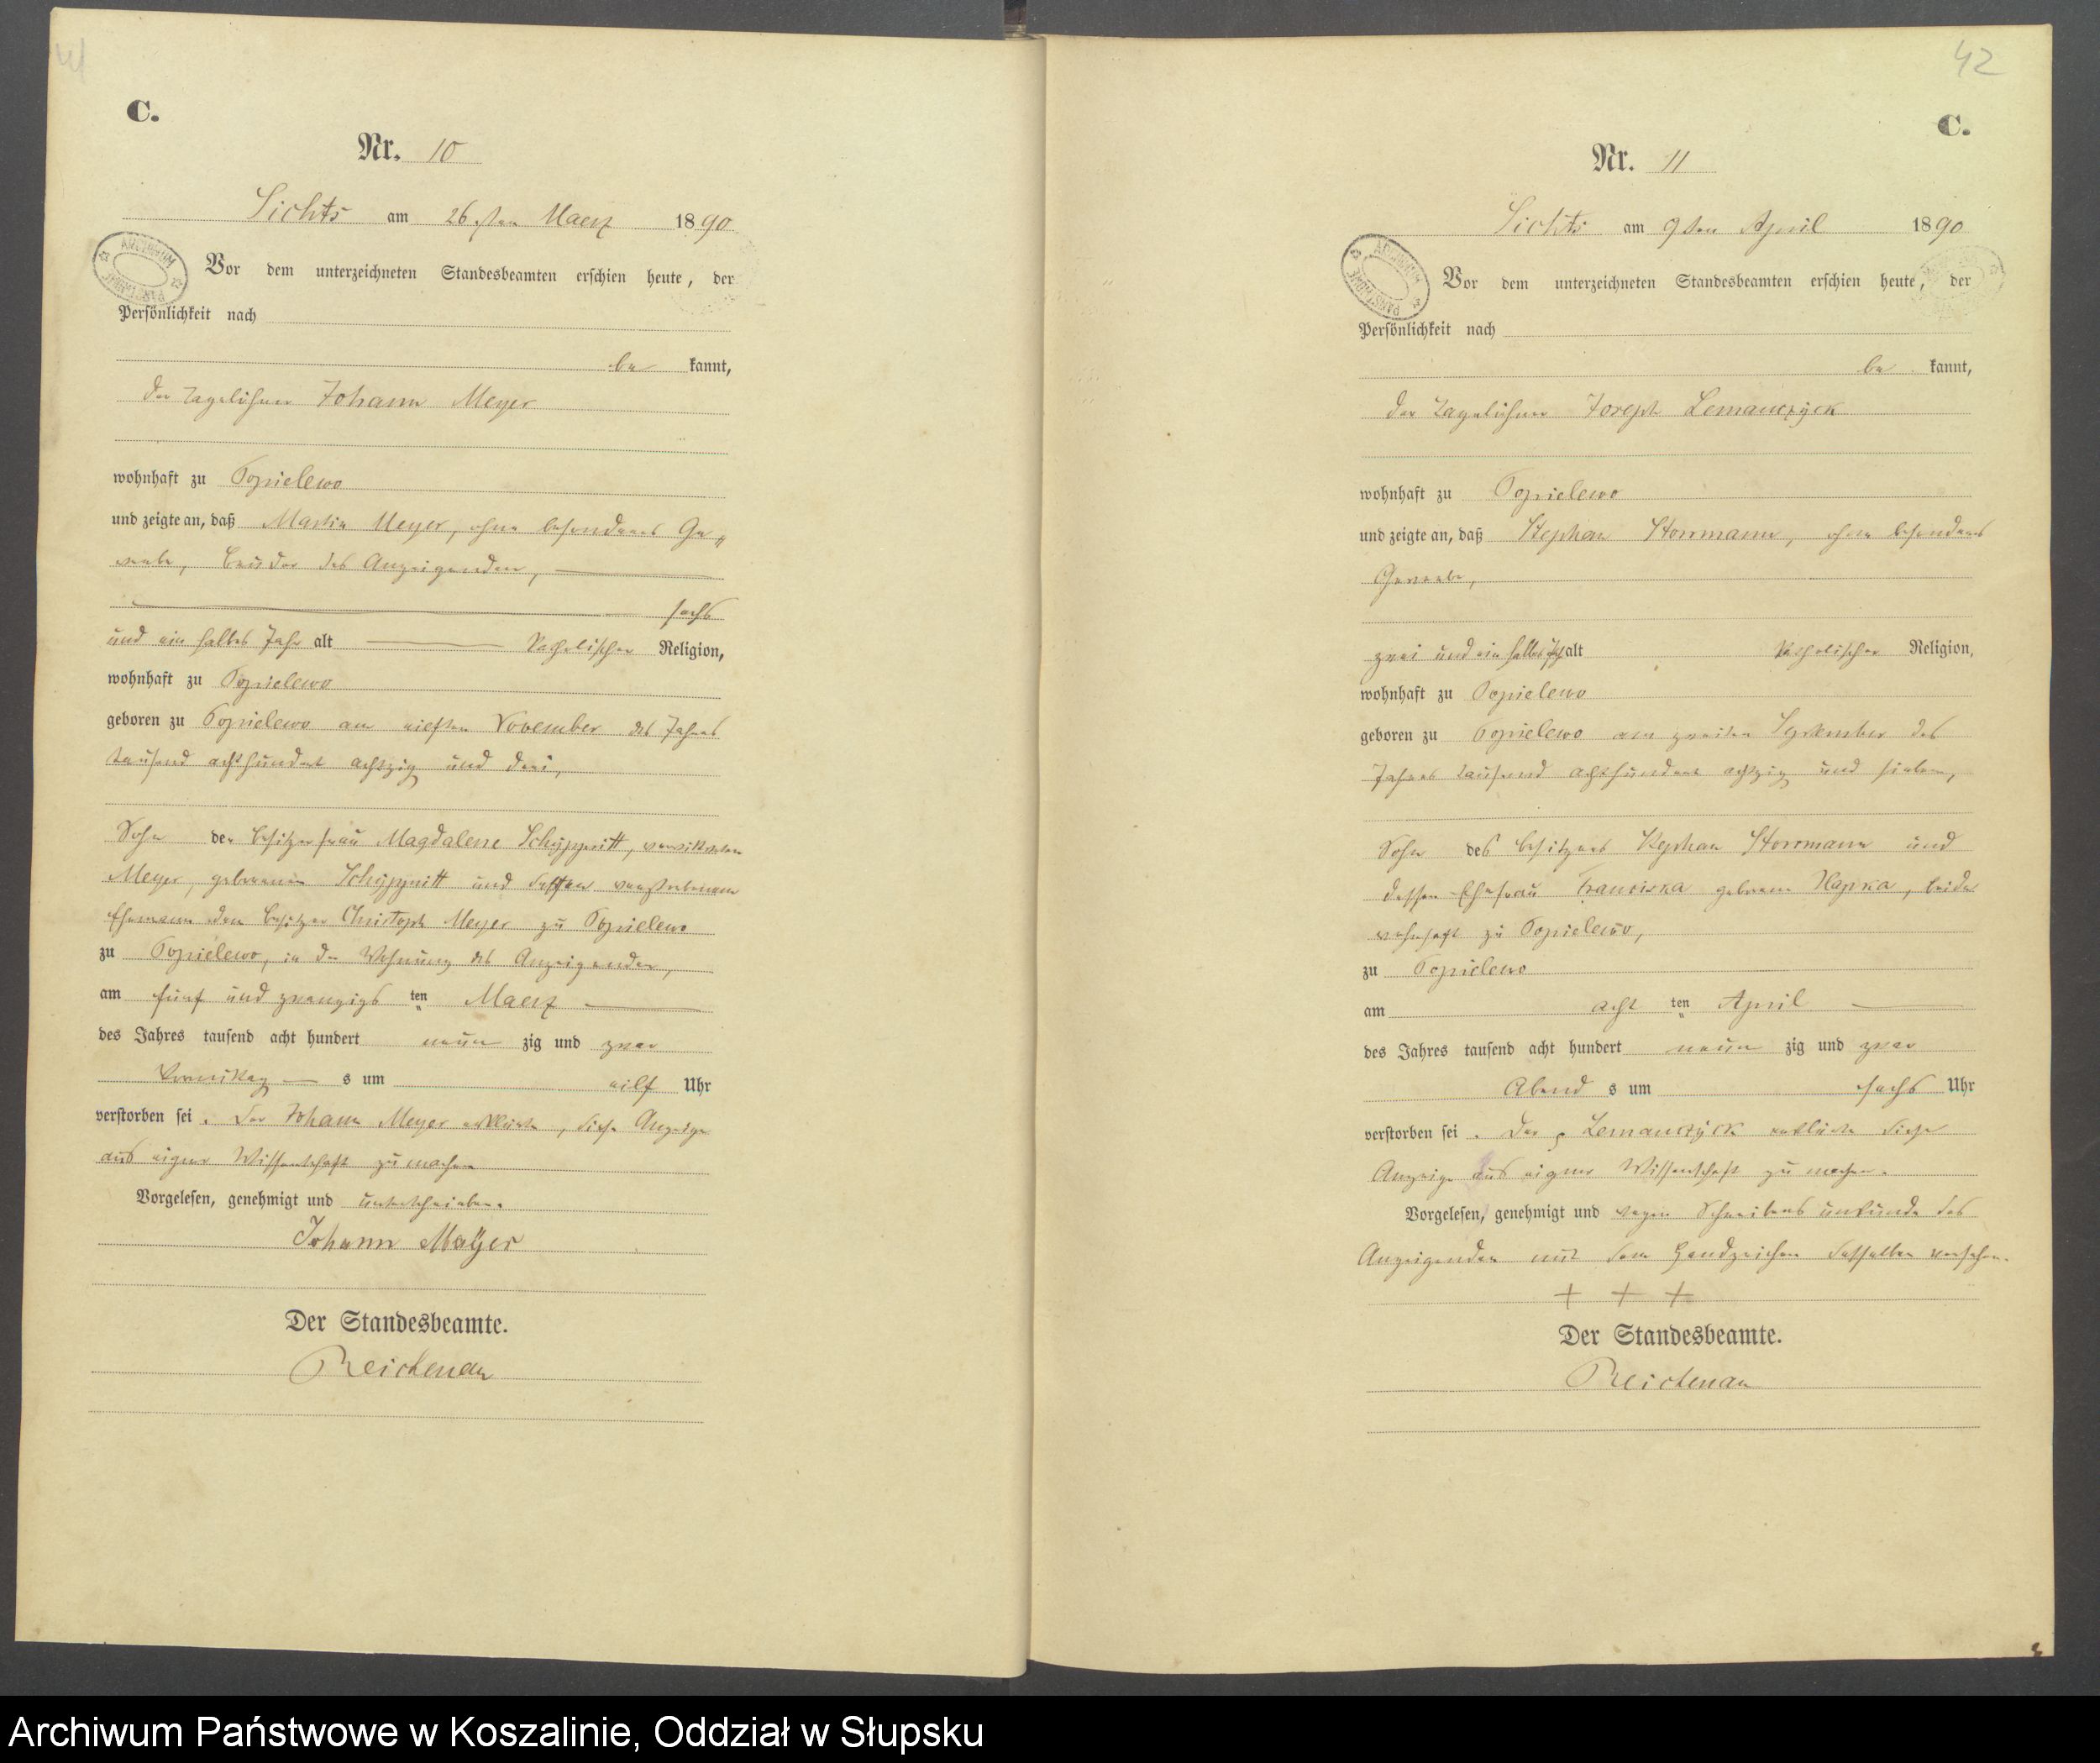 41
C.
Nr. 10
Lichts am 26sten Maerz 1890
ARCHIWUM PAŃSTWOWE
Vor dem unterzeichneten Standesbeamten erschien heute, der
Persönlichkeit nach
be kannt,
der Tagelöhner Johann Meyer
wohnhaft zu Popielewo
und zeigte an, daß Martin Meyer, ohne besonderes Ge„
werbe, Bruder des Anzeigenden,
sechs
und ein halbes Jahr alt Katholischer Religion,
wohnhaft zu Popielewo
geboren zu Popielewo am elften November des Jahres
tausend achthundert achtzig und drei,
Sohn der Besitzerfrau Magdalene Schyppritt, verwittweten
Meyer, geborenen Schyppritt und dessen verstorbenem
Ehemann dem Besitzer Christoph Meyer zu Popielewo
zu Popielewo, in der Wohnung des Anzeigenden,
am fünf und zwanzigs ten Maerz
des Jahres tausend acht hundert neun zig und zwar
Vormittag s um eilf Uhr
verstorben sei. Der Johann Meyer erklärte, diese Anzeige
aus eigner Wissenschaft zu machen
Vorgelesen, genehmigt und unterschrieben.
Johann Meÿer
Der Standesbeamte.
Reichenau
42
C.
Nr. 11
Lichts am 9ten April 1890
ARCHIWUM PAŃSTWOWE
Vor dem unterzeichneten Standesbeamten erschien heute, der
Persönlichkeit nach
be kannt,
der Tagelöhner Joseph Lemanczyck
wohnhaft zu Popielewo
und zeigte an, daß Stephan Storrmann, ohne besonderes
Gewerbe,
zwei und ein halbes Jahr alt Katholischer Religion,
wohnhaft zu Popielewo
geboren zu Popielewo am zweiten September des
Jahres tausend achthundert achtzig und sieben,
Sohn des Besitzers Stephan Storrmann und
dessen Ehefrau Franciska geborene Hapka, beide
wohnhaft zu Popielewo,
zu Popielewo
am acht ten April
des Jahres tausend acht hundert neun zig und zwar
Abend s um sechs Uhr
verstorben sei. Der p Lemanczyck erklärte diese
Anzeige aus eigner Wissenschaft zu machen.
Vorgelesen, genehmigt und wegen Schreibens unkunde des
Anzeigenden mit dem Handzeichen desselben versehen.
+ + +
Der Standesbeamte.
Reichenau
Archiwum Państwowe w Koszalinie, Oddział w Słupsku